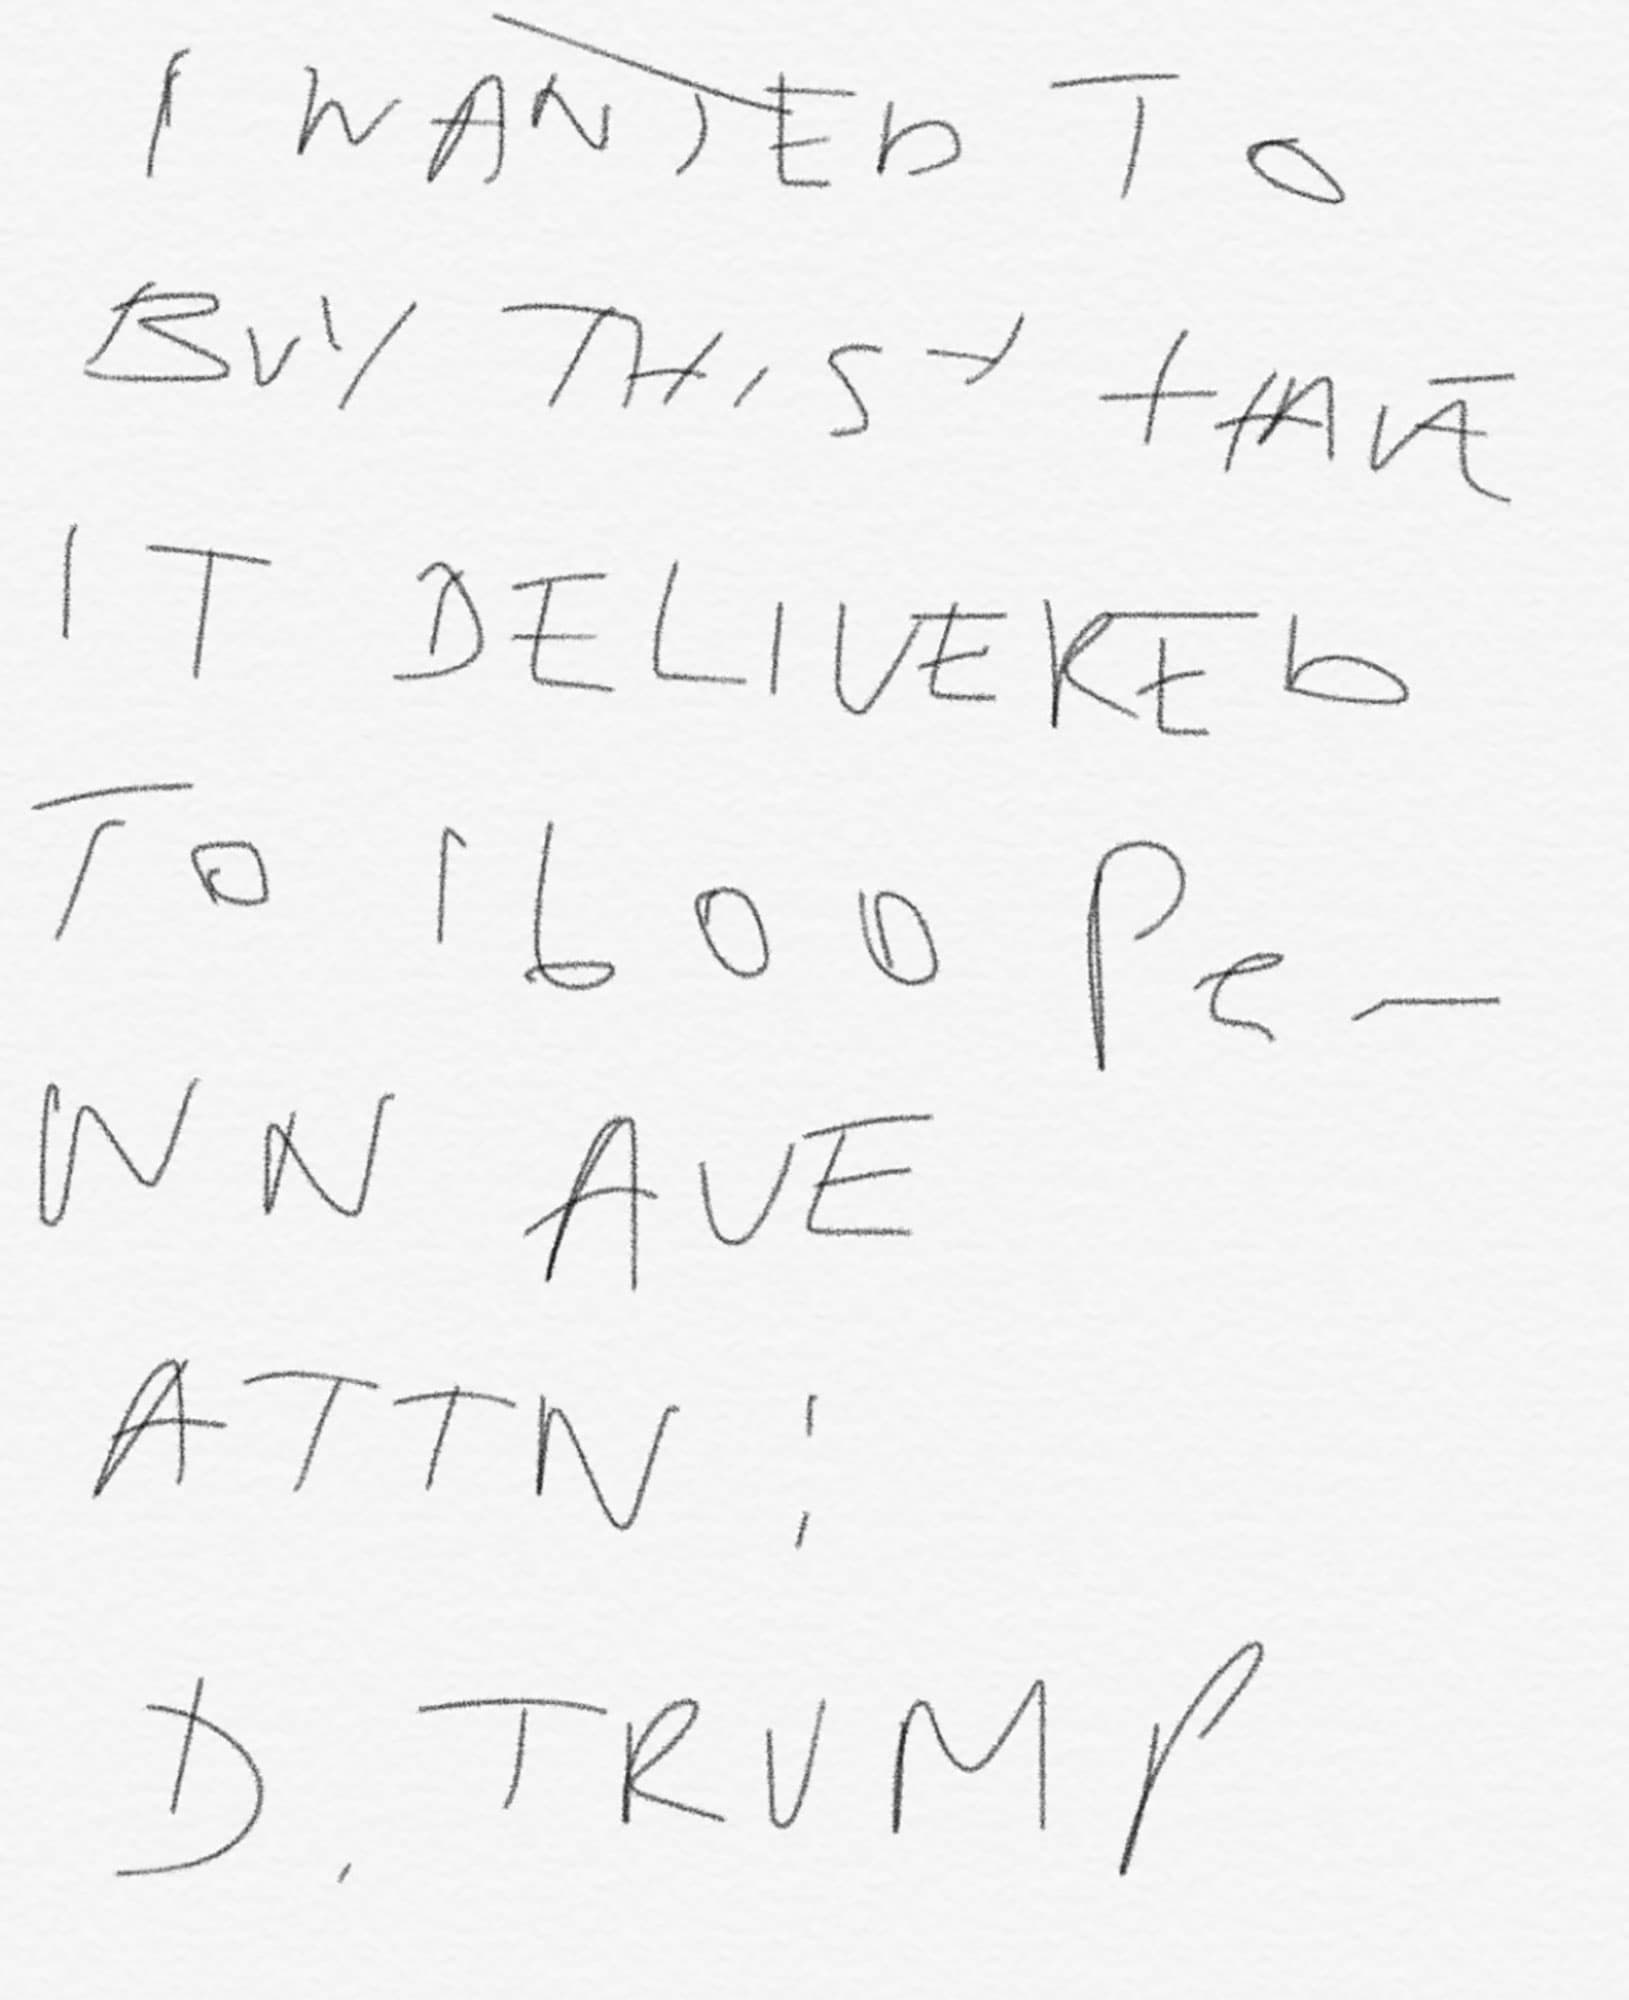 I WANTED TO
BUY THIS + HAVE
IT DELIVERED
TO 1600 Pe-
NN AVE
ATTN:
D. TRUMP